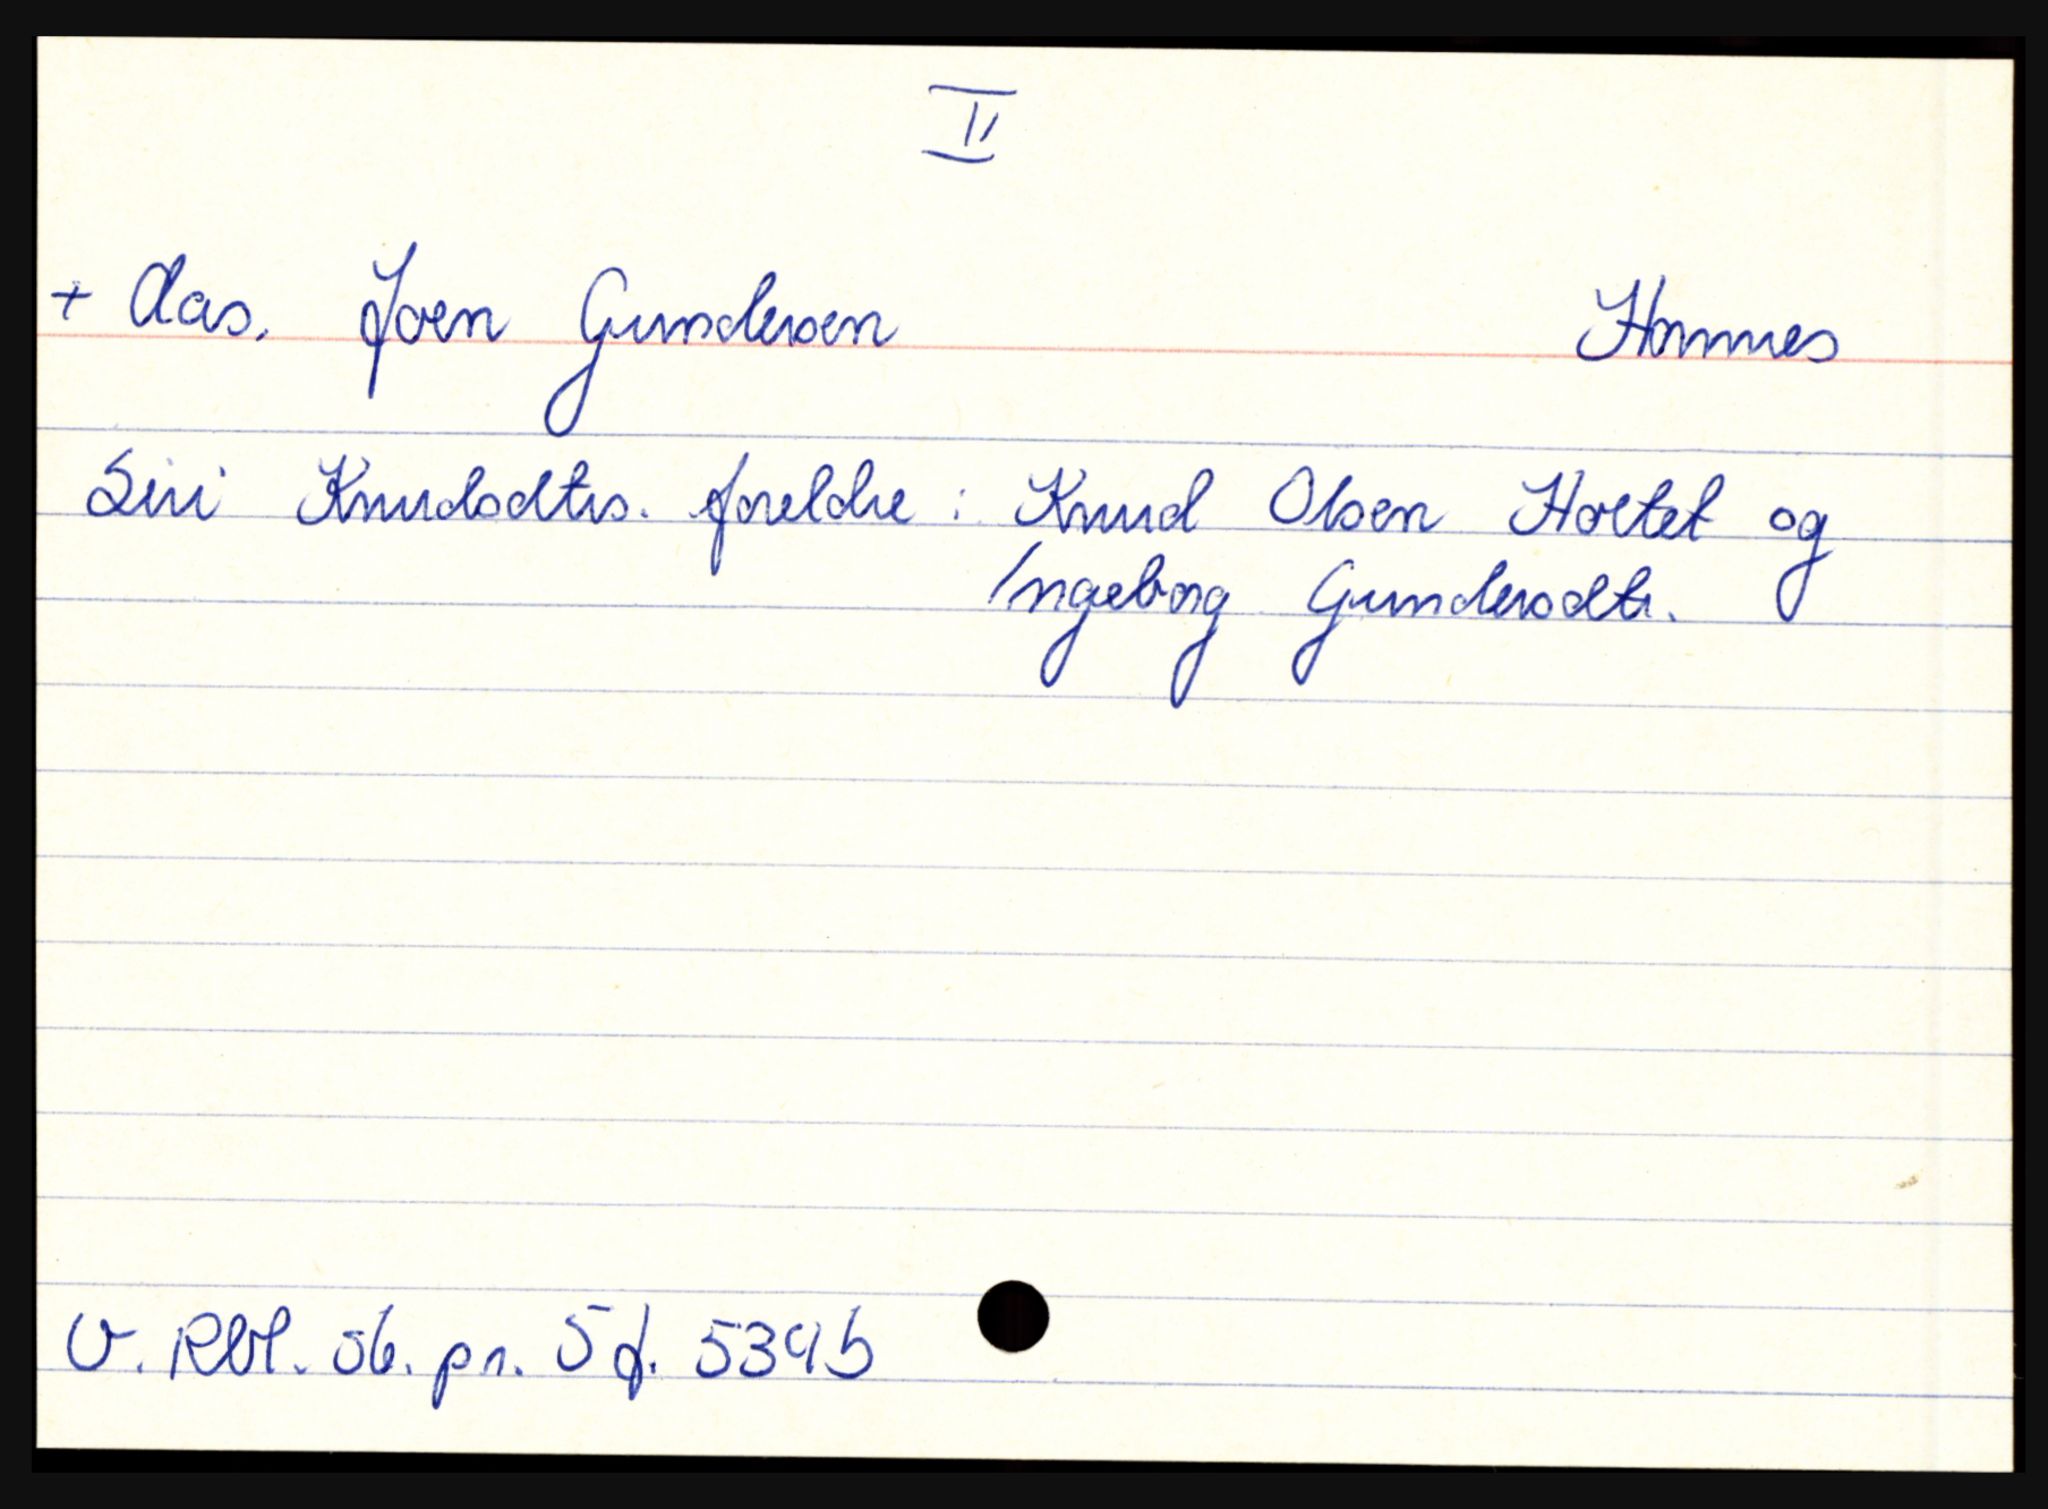 II
+ Aas. Joen Gundersen Hommes
Siri Knudsdtrs. foreldre : Knud Olsen Hortet og
Ingeborg Gundersdtr.
V. Rbl. sb. pr. 5 f. 539b